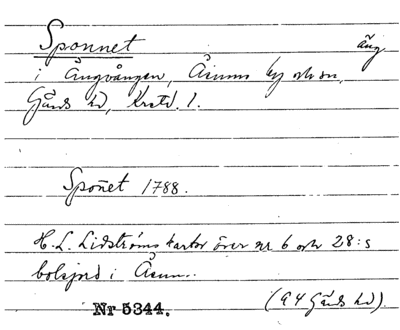 Sponnet äng
i Ängvången, Åsums by och sn,
Gärds hd, Krstd. l.
Spon̄et 1788.
H. L. Lidströms kartor över nr 6 och 28:s
bolsjord i Åsum.
Nr 5344. (A 4 Gärds hd)